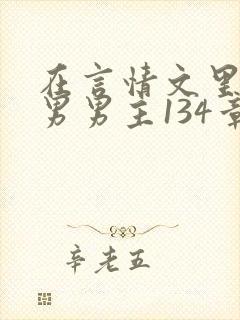 在言情文里
男男主134章
辛老五